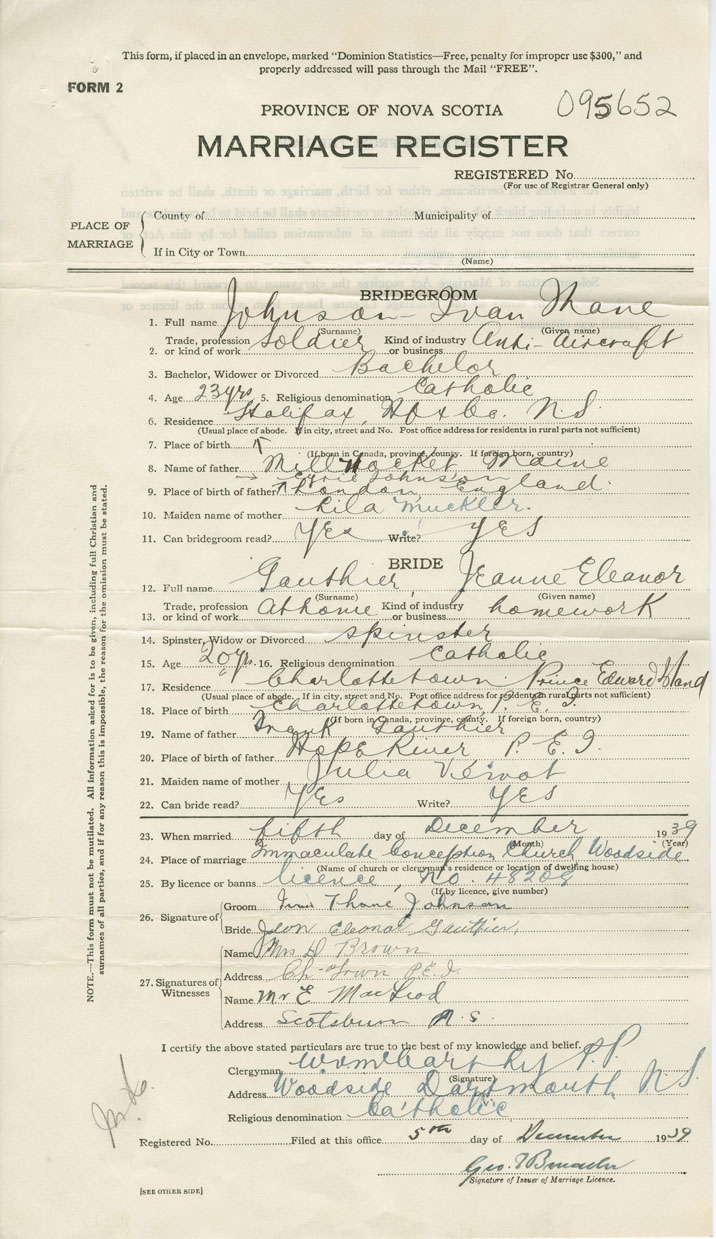 This form, if placed in an envelope, marked "Dominion Statistics—Free, penalty for improper use $300," and
properly addressed will pass through the Mail "FREE".
FORM 2
095652
PROVINCE OF NOVA SCOTIA
MARRIAGE REGISTER
REGISTERED No.
(For use of Registrar General only)
PLACE OF MARRIAGE
County of Municipality of
If in City or Town
(Name)
BRIDEGROOM
1. Full name Johnson Ivan Thane
(Surname) (Given name)
2. Trade, profession or kind of work Soldier Kind of industry or business Anti-Aircraft
3. Bachelor, Widower or Divorced Bachelor
4. Age 23 yrs 5. Religious denomination Catholic
6. Residence Halifax, Hfx Co. N.S.
(Usual place of abode. If in city, street and No. Post office address for residents in rural parts not sufficient)
7. Place of birth
(If born in Canada, province, county. If foreign born, country)
8. Name of father Millinocket Maine
Johnson
9. Place of birth of father London, England.
10. Maiden name of mother Lila Muckler.
11. Can bridegroom read? Yes Write? YES
BRIDE
12. Full name Gauthier, Jeanne Eleanor
(Surname) (Given name)
13. Trade, profession or kind of work At home Kind of industry or business homework
14. Spinster, Widow or Divorced spinster
15. Age 20 yrs. 16. Religious denomination Catholic
17. Residence Charlottetown Prince Edward Island
(Usual place of abode. If in city, street and No. Post office address for residents in rural parts not sufficient)
18. Place of birth Charlottetown, P. E. I.
(If born in Canada, province, county. If foreign born, country)
19. Name of father Frank Gauthier
20. Place of birth of father Hope River P. E. I.
21. Maiden name of mother Julia
22. Can bride read? YES Write? YES
23. When married fifth day of December 1939
(Month) (Year)
24. Place of marriage Immaculate Conception Church Woodside
(Name of church or clergyman's residence or location of dwelling house)
25. By licence or banns licence, No. 48209
(If by licence, give number)
26. Signature of
Groom Ivan Thane Johnson
Bride Jean Eleanor Gauthier
27. Signatures of Witnesses
Name Mrs D Brown
Address Ch-Town P.E.I.
Name Mr E MacLeod
Address Scotsburn N.S.
I certify the above stated particulars are to the best of my knowledge and belief.
Clergyman P.P.
(Signature)
Address Woodside Dartmouth N.S.
Religious denomination Catholic
Registered No. Filed at this office 5th day of December 1939
Geo.
Signature of Issuer of Marriage Licence.
[SEE OTHER SIDE]
NOTE.—This form must not be mutilated. All information asked for is to be given, including full Christian and
surnames of all parties, and if for any reason this is impossible, the reason for the omission must be stated.